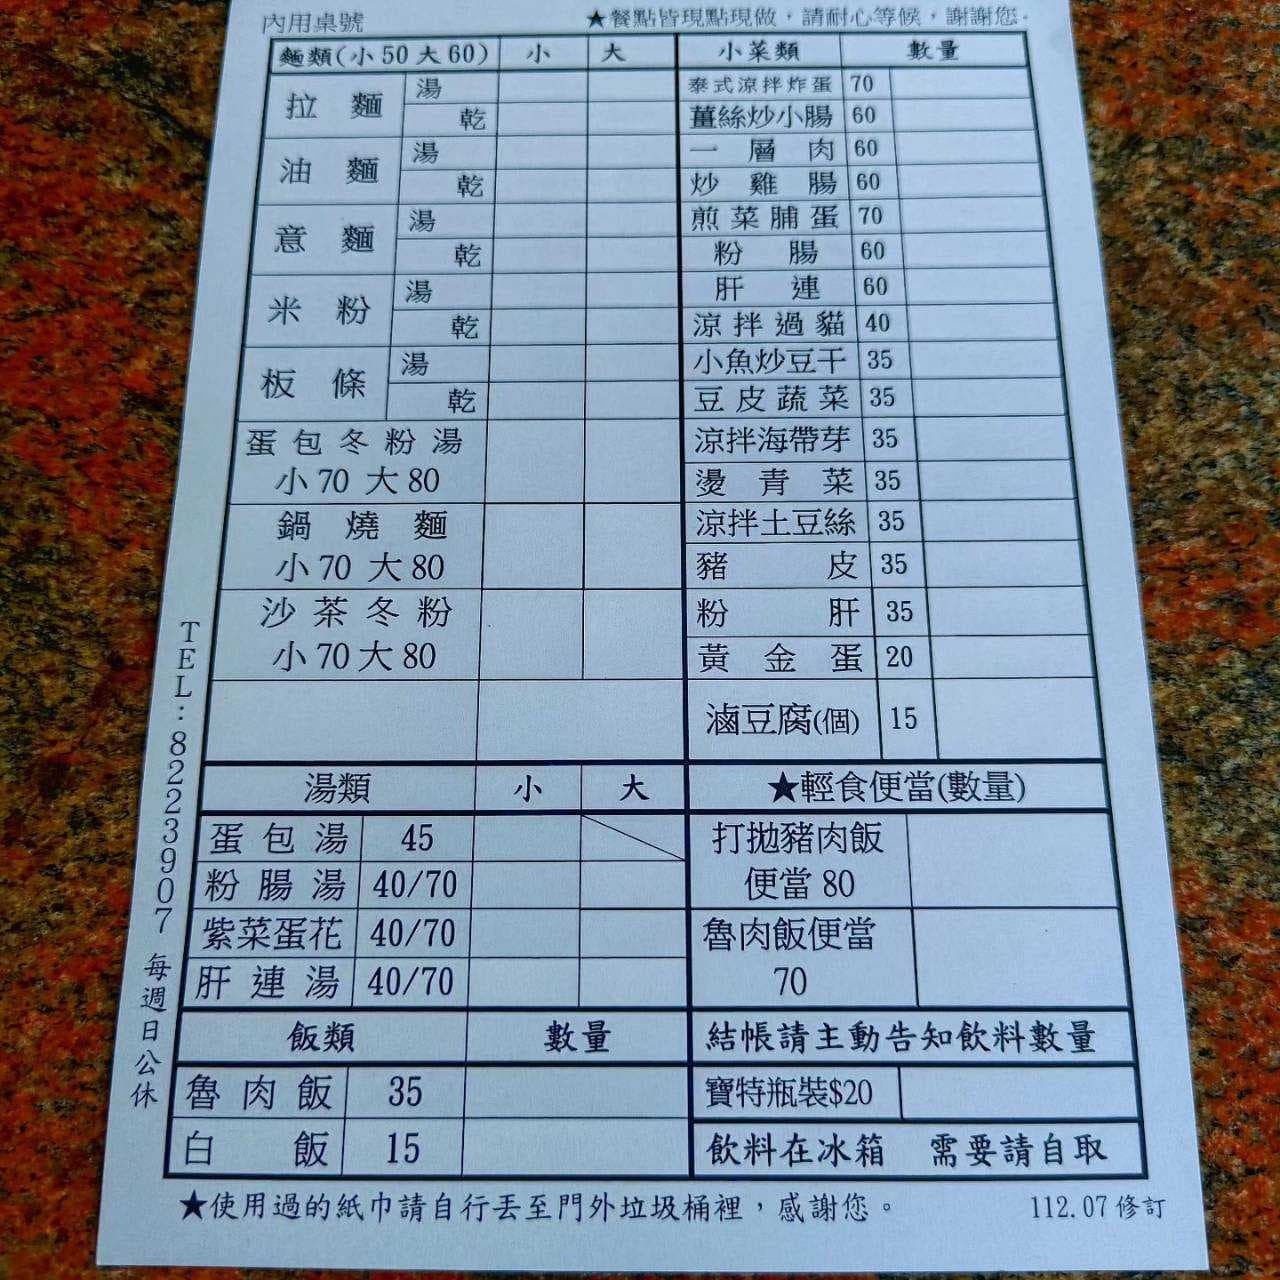 內用桌號
★餐點皆現點現做，請耐心等候，謝謝您。
麵類(小50大60) 小 大
拉麵 湯
乾
油麵 湯
乾
意麵 湯
乾
米粉 湯
乾
板條 湯
乾
蛋包冬粉湯
小70 大80
鍋燒麵
小70 大80
沙茶冬粉
小70大80
小菜類 數量
泰式涼拌炸蛋 70
薑絲炒小腸 60
一層肉 60
炒雞腸 60
煎菜脯蛋 70
粉腸 60
肝連 60
涼拌過貓 40
小魚炒豆干 35
豆皮蔬菜 35
涼拌海帶芽 35
燙青菜 35
涼拌土豆絲 35
豬皮 35
粉肝 35
黃金蛋 20
滷豆腐(個) 15
湯類 小 大
蛋包湯 45
粉腸湯 40/70
紫菜蛋花 40/70
肝連湯 40/70
★輕食便當(數量)
打拋豬肉飯
便當80
魯肉飯便當
70
飯類 數量
魯肉飯 35
白飯 15
結帳請主動告知飲料數量
寶特瓶裝$20
飲料在冰箱 需要請自取
TEL:8223907 每週日公休
★使用過的紙巾請自行丟至門外垃圾桶裡，感謝您。
112.07修訂